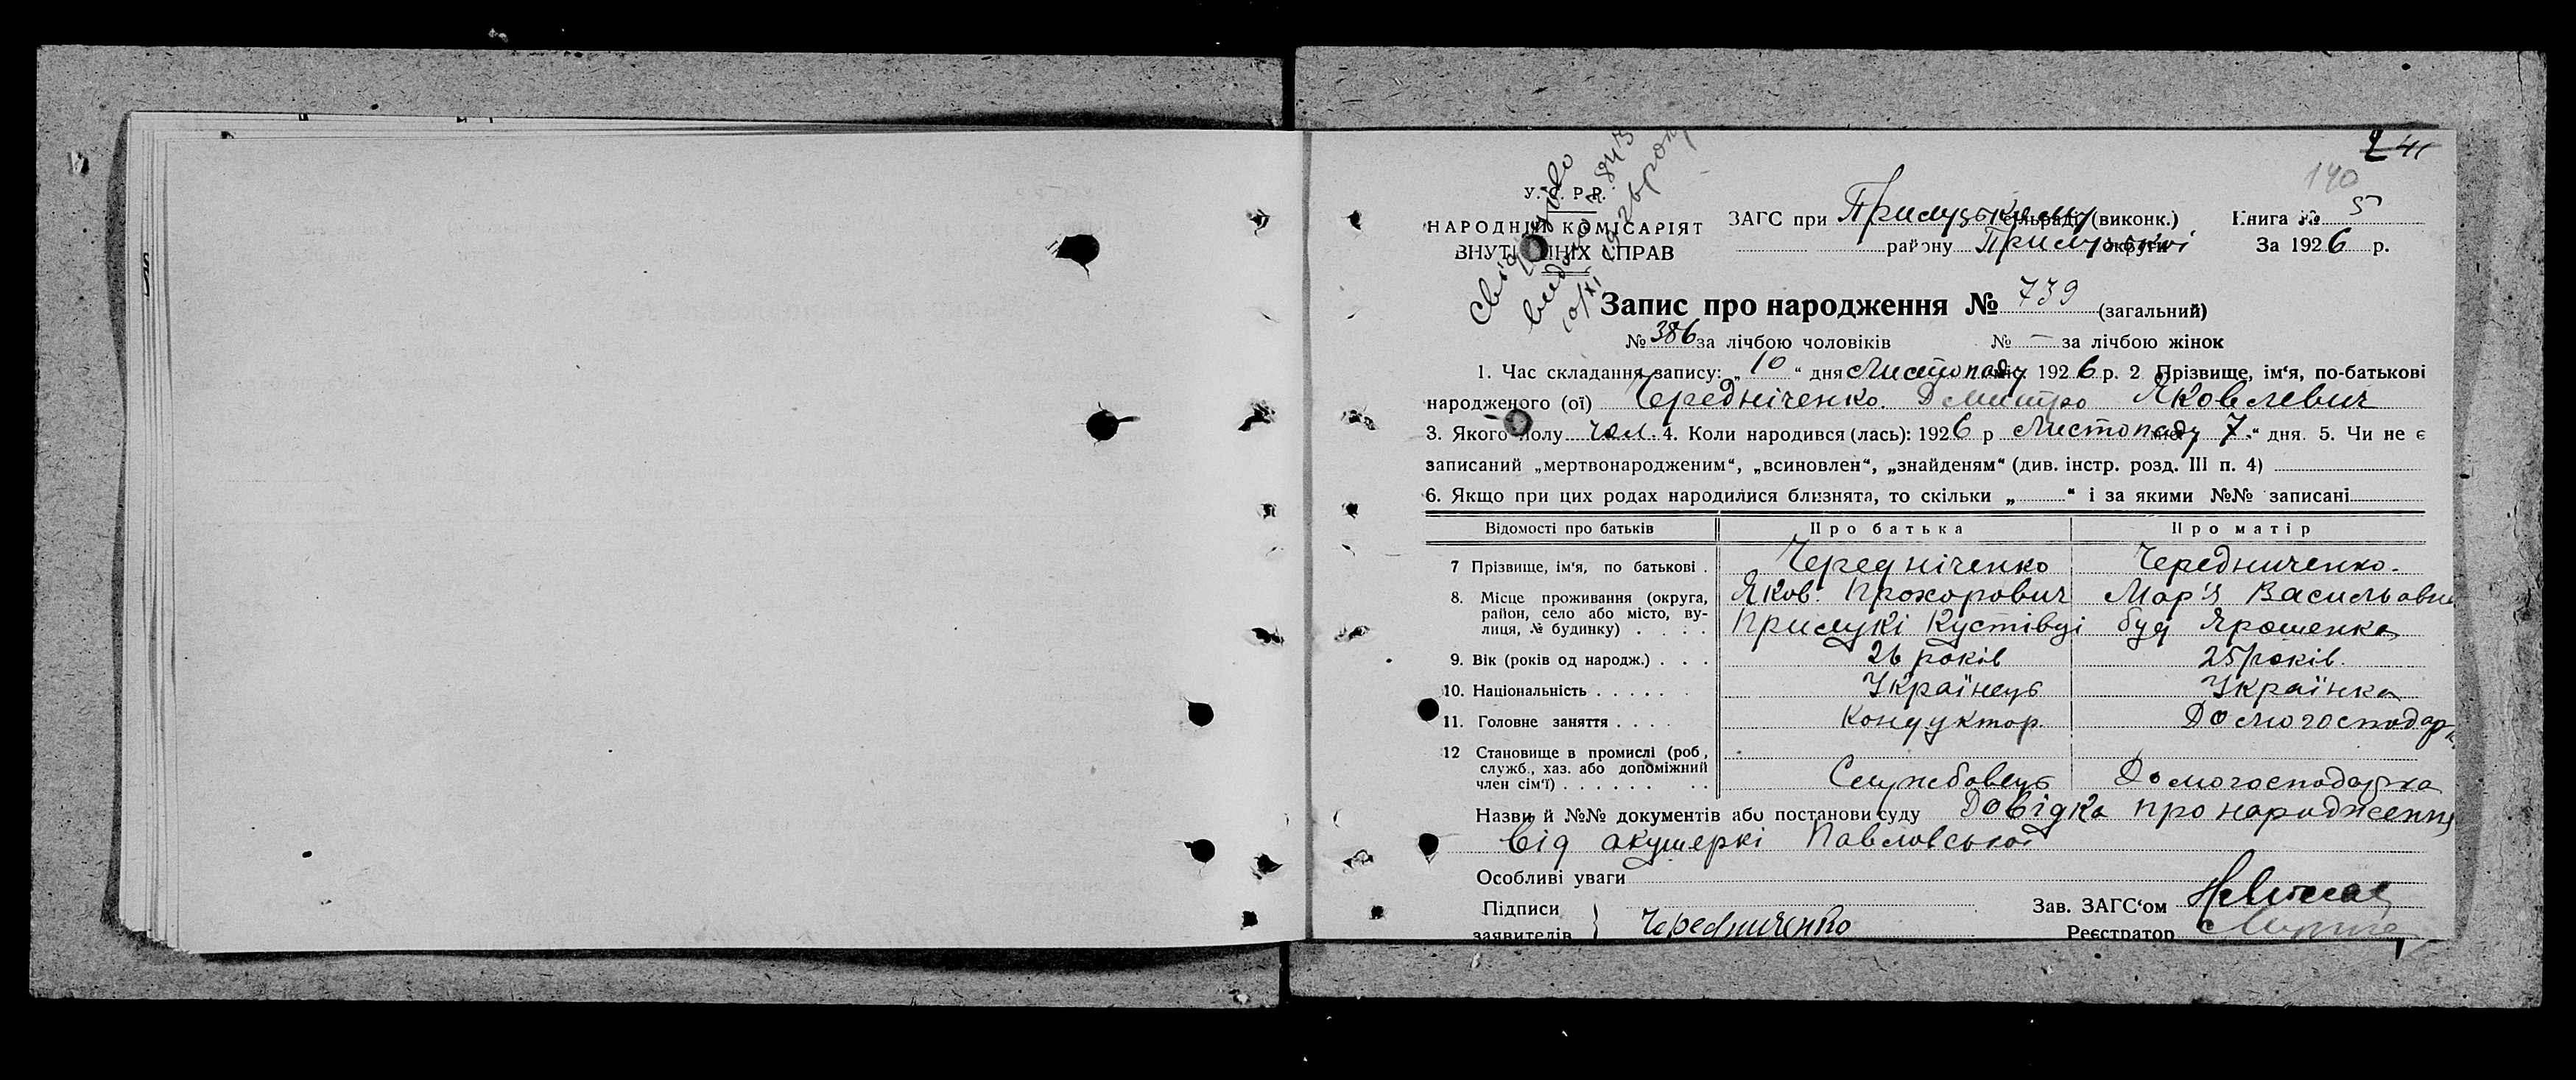 2 41
140
Свідоцтво
видано № 843
10/XI 1926 року
У. С. Р. Р.
НАРОДНІЙ КОМІСАРІЯТ
ВНУТРІШНІХ СПРАВ
ЗАГС при Прилуцькому сільраді (виконк.)
району Прилуцької округи
Книга № 5
За 1926 р.
Запис про народження № 739 (загальний)
№ 386 за лічбою чоловіків № — за лічбою жінок
1. Час складання запису: „ 10 “ дня Листопаду міс. 1926 р. 2 Прізвище, ім‘я, по-батькові
народженого (ої) Чередніченко Дмитро Яковлевич
3. Якого полу чол. 4. Коли народився (лась): 1926 р Листопаду 7 “ дня. 5. Чи не є
записаний „мертвонародженим“, „всиновлен“, „знайденям“ (див. інстр. розд. III п. 4)
6. Якщо при цих родах народилися близнята, то скільки „ “ і за якими №№ записані
Відомості про батьків Про батька Про матір
7 Прізвище, ім‘я, по батькові . Чередніченко Чередниченко.
Яков. Прохорович Мар'я Васильовна
8. Місце проживання (округа,
район, село або місто, ву-
лиця, № будинку) . . . . Прилукі Кустівці буд Ярошенка
9. Вік (років од народж.) . . . 26 років 25 років.
10. Національність . . . . . Українець Українка
11. Головне заняття . . . . Кондуктор. Домогосподарка
12 Становище в промислі (роб,
служб., хаз. або допоміжний
член сім‘ї) . . . . . . . . Службовець Домогосподарка
Назви й №№ документів або постанови суду Довідка про народження
від акушеркі Павловської
Особливі уваги
Підписи
заявителів } Чередниченко
Зав. ЗАГС‘ом
Реєстратор